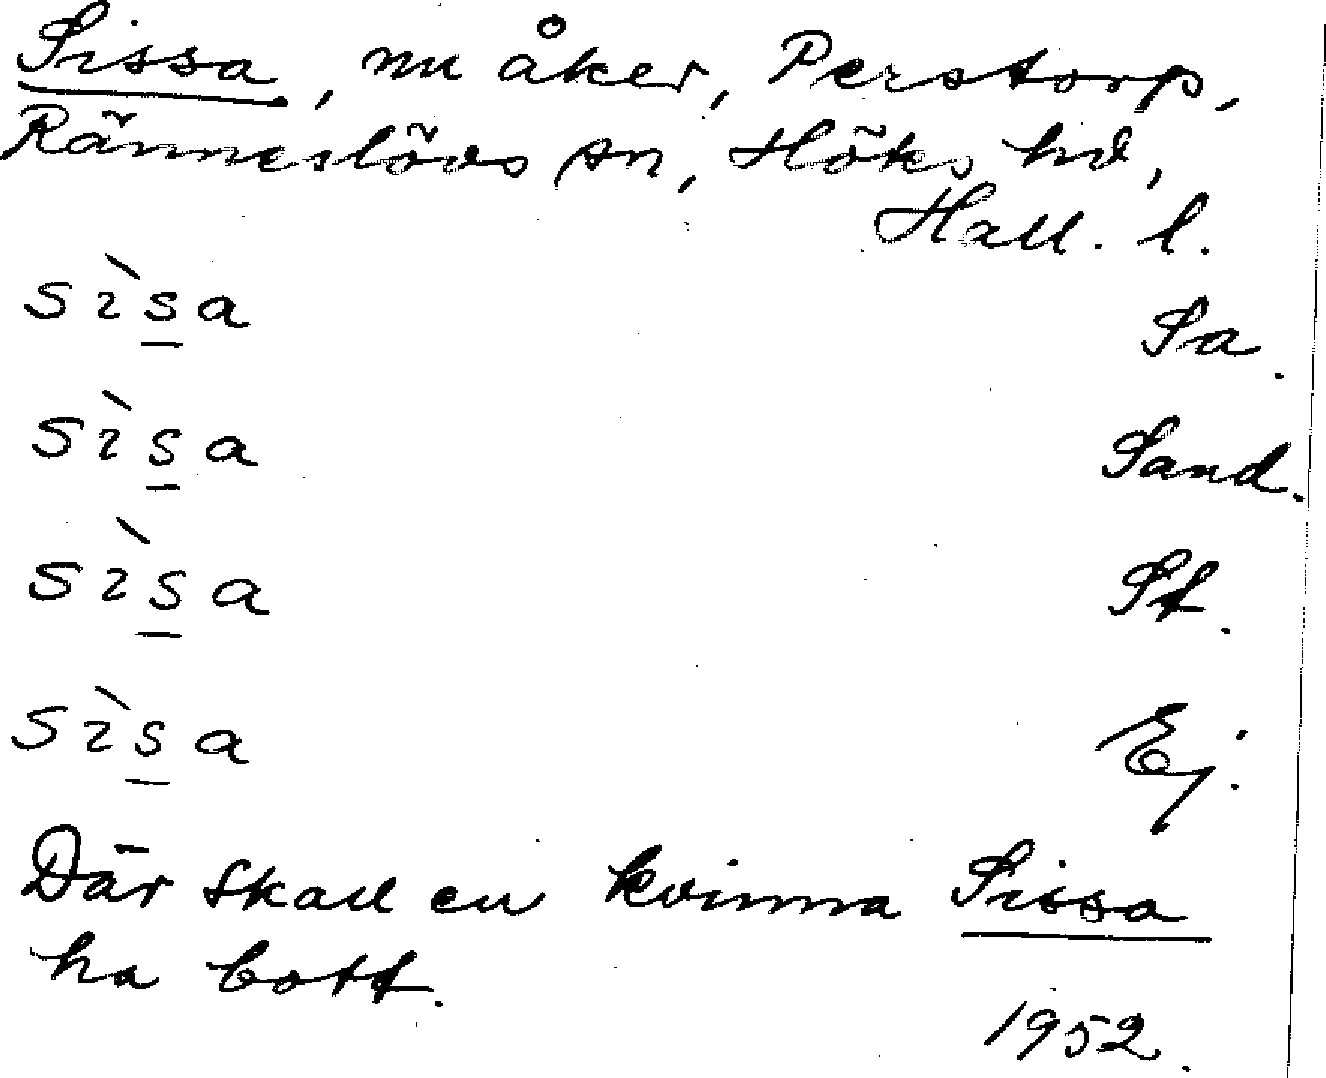 Sissa, nu åker, Perstorp,
Ränneslövs sn, Höks hd,
Hall. l.
sìsa Sa.
sìsa Sand.
sìsa St.
sìsa Ej.
Där skall en kvinna Sissa
ha bott.
1952.